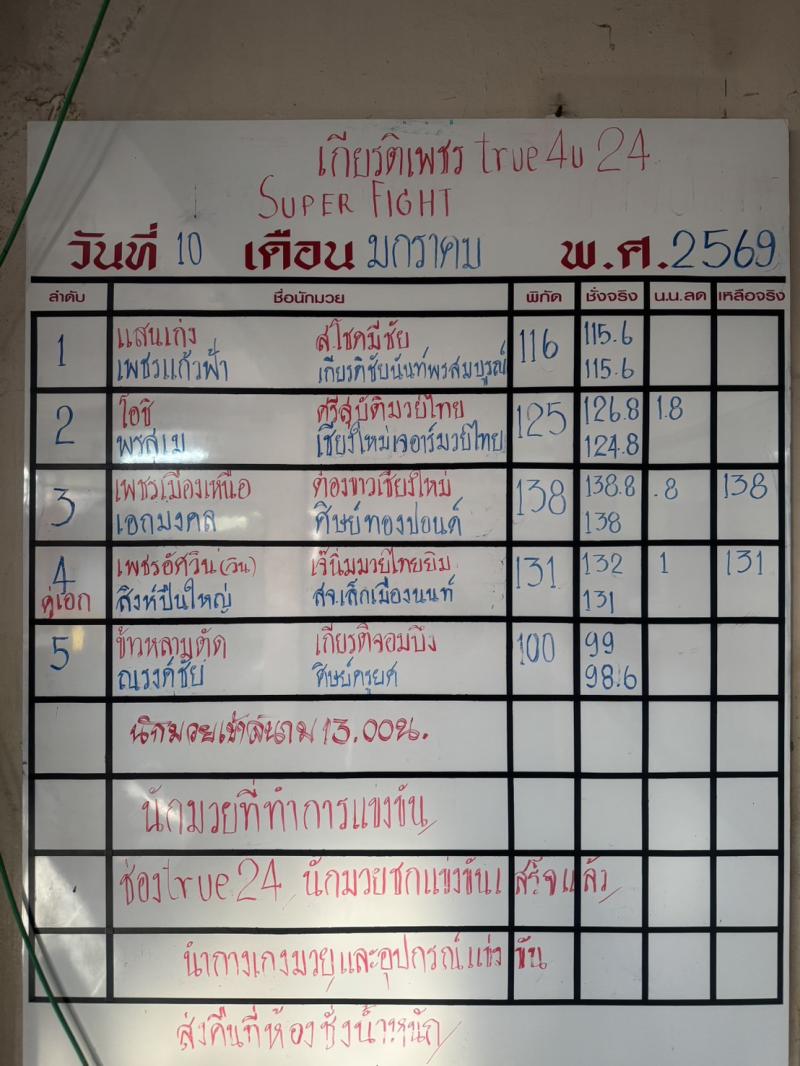 เกียรติเพชร true4u 24
SUPER FIGHT
วันที่ 10 เดือน มกราคม พ.ศ. 2569
ลำดับ ชื่อนักมวย พิกัด ชั่งจริง น.น.ลด เหลือจริง
1 แสนเก่ง ส.โชคมีชัย 116 115.6
เพชรแก้วฟ้า เกียรติชัยนันท์พรสมบูรณ์ 115.6
2 โอชิ ศรีสุบัติมวยไทย 125 126.8 1.8
พรสุเม เชียงใหม่เจอาร์มวยไทย 124.8
3 เพชรเมืองเหนือ ต้องขาวเชียงใหม่ 138 138.8 .8 138
เอกมงคล ศิษย์ทองปอนด์ 138
4 เพชรอัศวิน (วิน) เจ๊นิ่มมวยไทยยิม 131 132 1 131
คู่เอก สิงห์ปืนใหญ่ สจ.เล็กเมืองนนท์ 131
5 ข้าวหลามตัด เกียรติจอมบึง 100 99
ณรงค์ชัย ศิษย์ครูยศ 98.6
นักมวยเข้าสนาม 13.00น.
นักมวยที่ทำการแข่งขัน
ช่องtrue24 นักมวยชกแข่งขันเสร็จแล้ว
นำกางเกงมวยและอุปกรณ์แข่งขัน
ส่งคืนที่ห้องชั่งน้ำหนัก